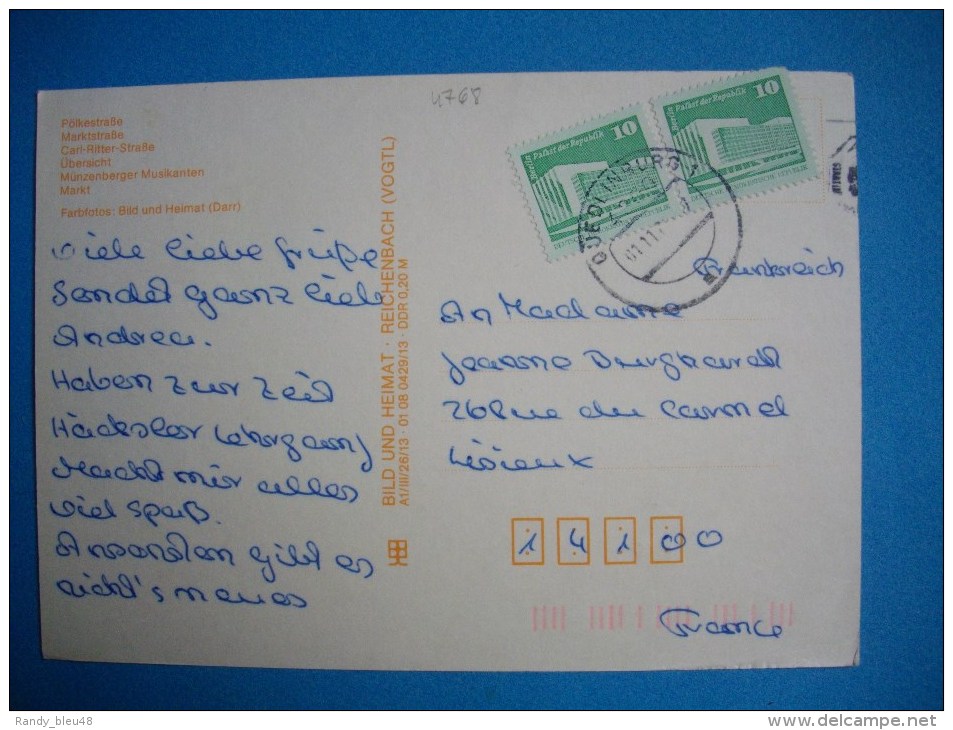 4768
Pölkestraße
Marktstraße
Carl-Ritter-Straße
Übersicht
Münzenberger Musikanten
Markt
Farbfotos: Bild und Heimat (Darr)
Viele liebe Grüße
Sendet ganz lieb
Andrea.
Haben zur Zeit
Häcksler Lehrgang
Macht mir alles
viel Spaß.
Ansonsten gibt es
nicht's neues
BILD UND HEIMAT · REICHENBACH (VOGTL)
A1/III/26/13 · 01 08 0429/13 · DDR 0,20 M
Berlin Palast der Republik 10
Berlin Palast der Republik 10
QUEDLINBURG 1
01.11.
Frankreich
An Madame
Jeanne Burghardt
26 Rue du Carmel
Lisieux
14100
France
Randy_bleu48
http://www.delcampe.net